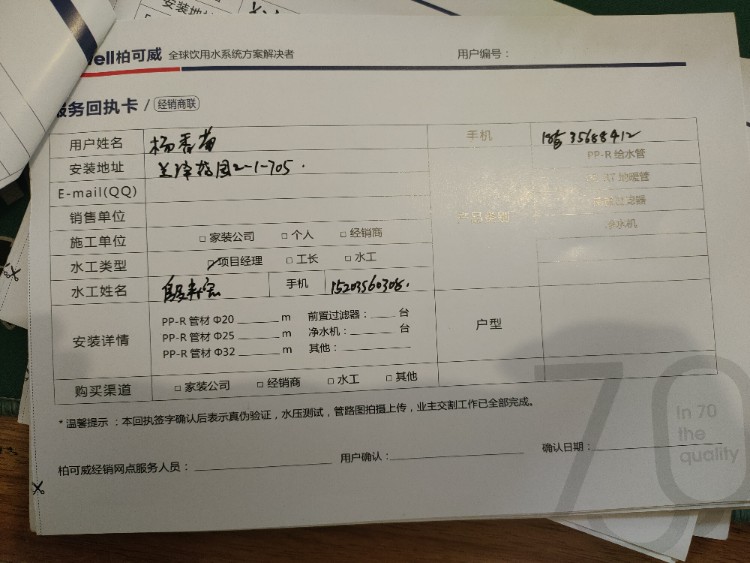 ell柏可威 全球饮用水系统方案解决者 用户编号：
服务回执卡 / 经销商联
用户姓名 杨香 手机 35688412
安装地址 2-1-705. PP-R 给水管
E-mail(QQ) 地暖管
销售单位 过滤器
施工单位 □ 家装公司 □ 个人 □ 经销商 净水机
水工类型 □项目经理 □ 工长 □ 水工
水工姓名 段 手机 15203560308.
安装详情 PP-R 管材 Φ20 ______ m 前置过滤器：____ 台 户型
PP-R 管材 Φ25 ______ m 净水机：____ 台
PP-R 管材 Φ32 ______ m 其他：______
购买渠道 □ 家装公司 □ 经销商 □ 水工 □ 其他
* 温馨提示：本回执签字确认后表示真伪验证，水压测试，管路图拍摄上传，业主交割工作已全部完成。
柏可威经销网点服务人员：______ 用户确认：______ 确认日期：______
70
In 70
the
quality